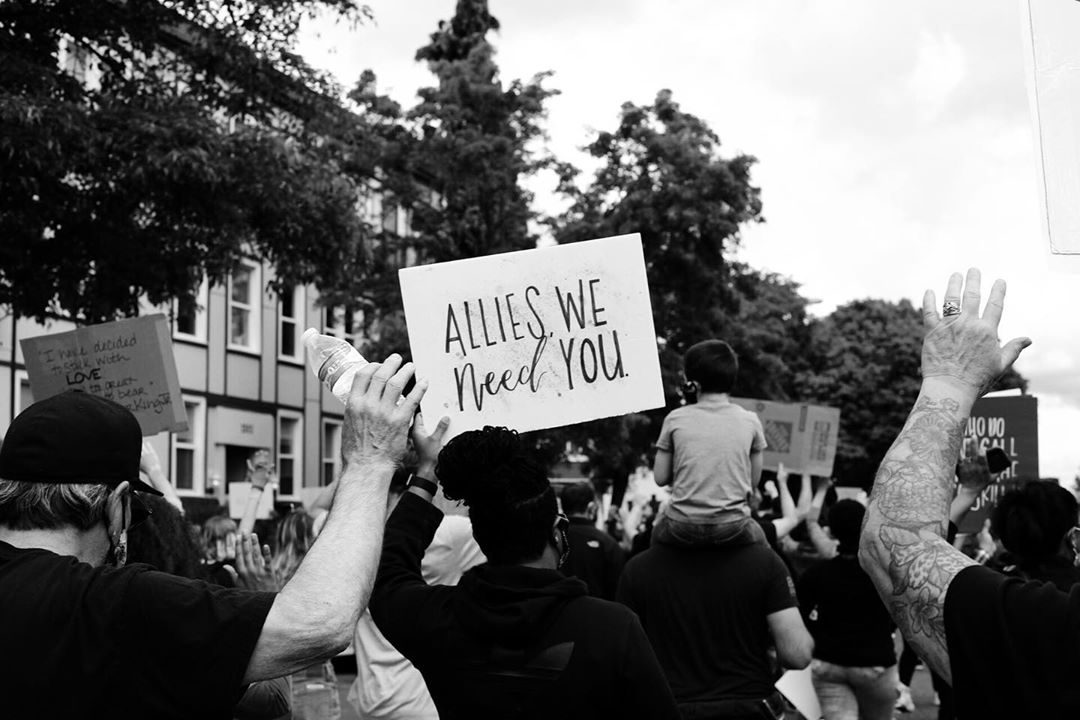 "I have decided
to stick with
LOVE
to great
to bear."
ALLIES, WE
Need YOU.
WHO DO
CALL